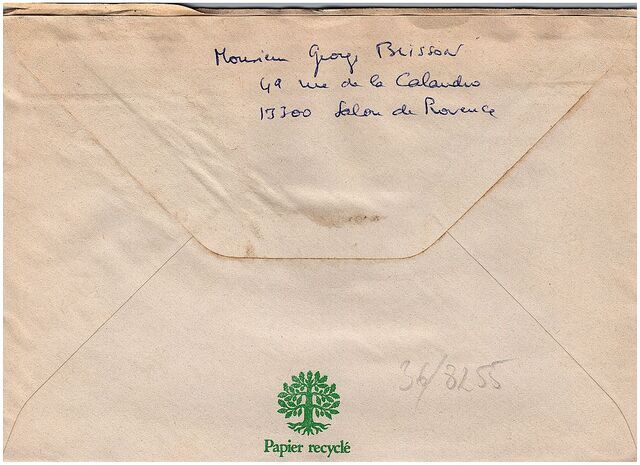 Monsieur George BRISSON
49 rue de la Calandro
13300 Salon de Provence
36/8255
Papier recyclé